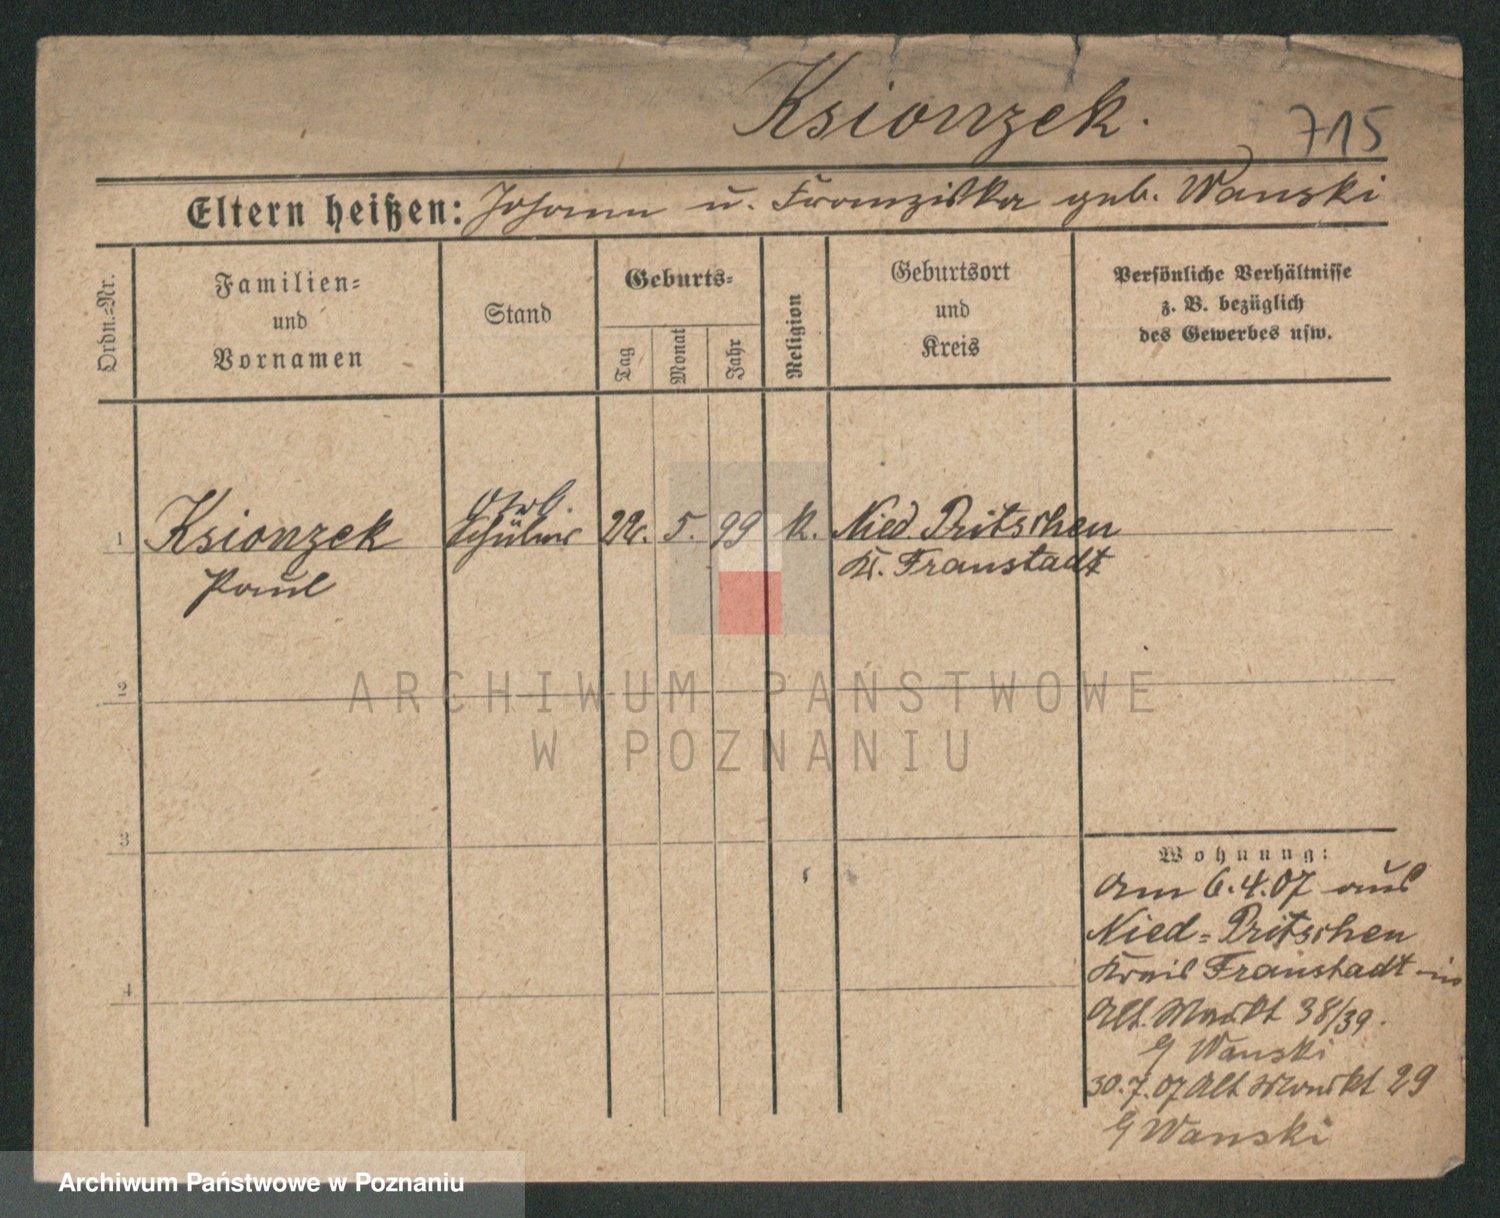 Ksionzek.
715
Eltern heißen: Johann u. Franziska geb. Wanski
Ordn.=Nr.
Familien=
und
Vornamen
Stand
Geburts=
Tag
Monat
Jahr
Religion
Geburtsort
und
Kreis
Persönliche Verhältnisse
z. B. bezüglich
des Gewerbes usw.
1 Ksionzek Schüler 22. 5. 99 k. Nied. Pritschen
Paul Kr. Fraustadt
2
3
4
Wohnung:
Am 6.4.07 aus
Nied=Pritschen
Kreis Fraustadt in
Alt. Markt 38/39.
Wanski
30.7.07 Alt Markt 29
Wanski
ARCHIWUM PAŃSTWOWE
W POZNANIU
Archiwum Państwowe w Poznaniu